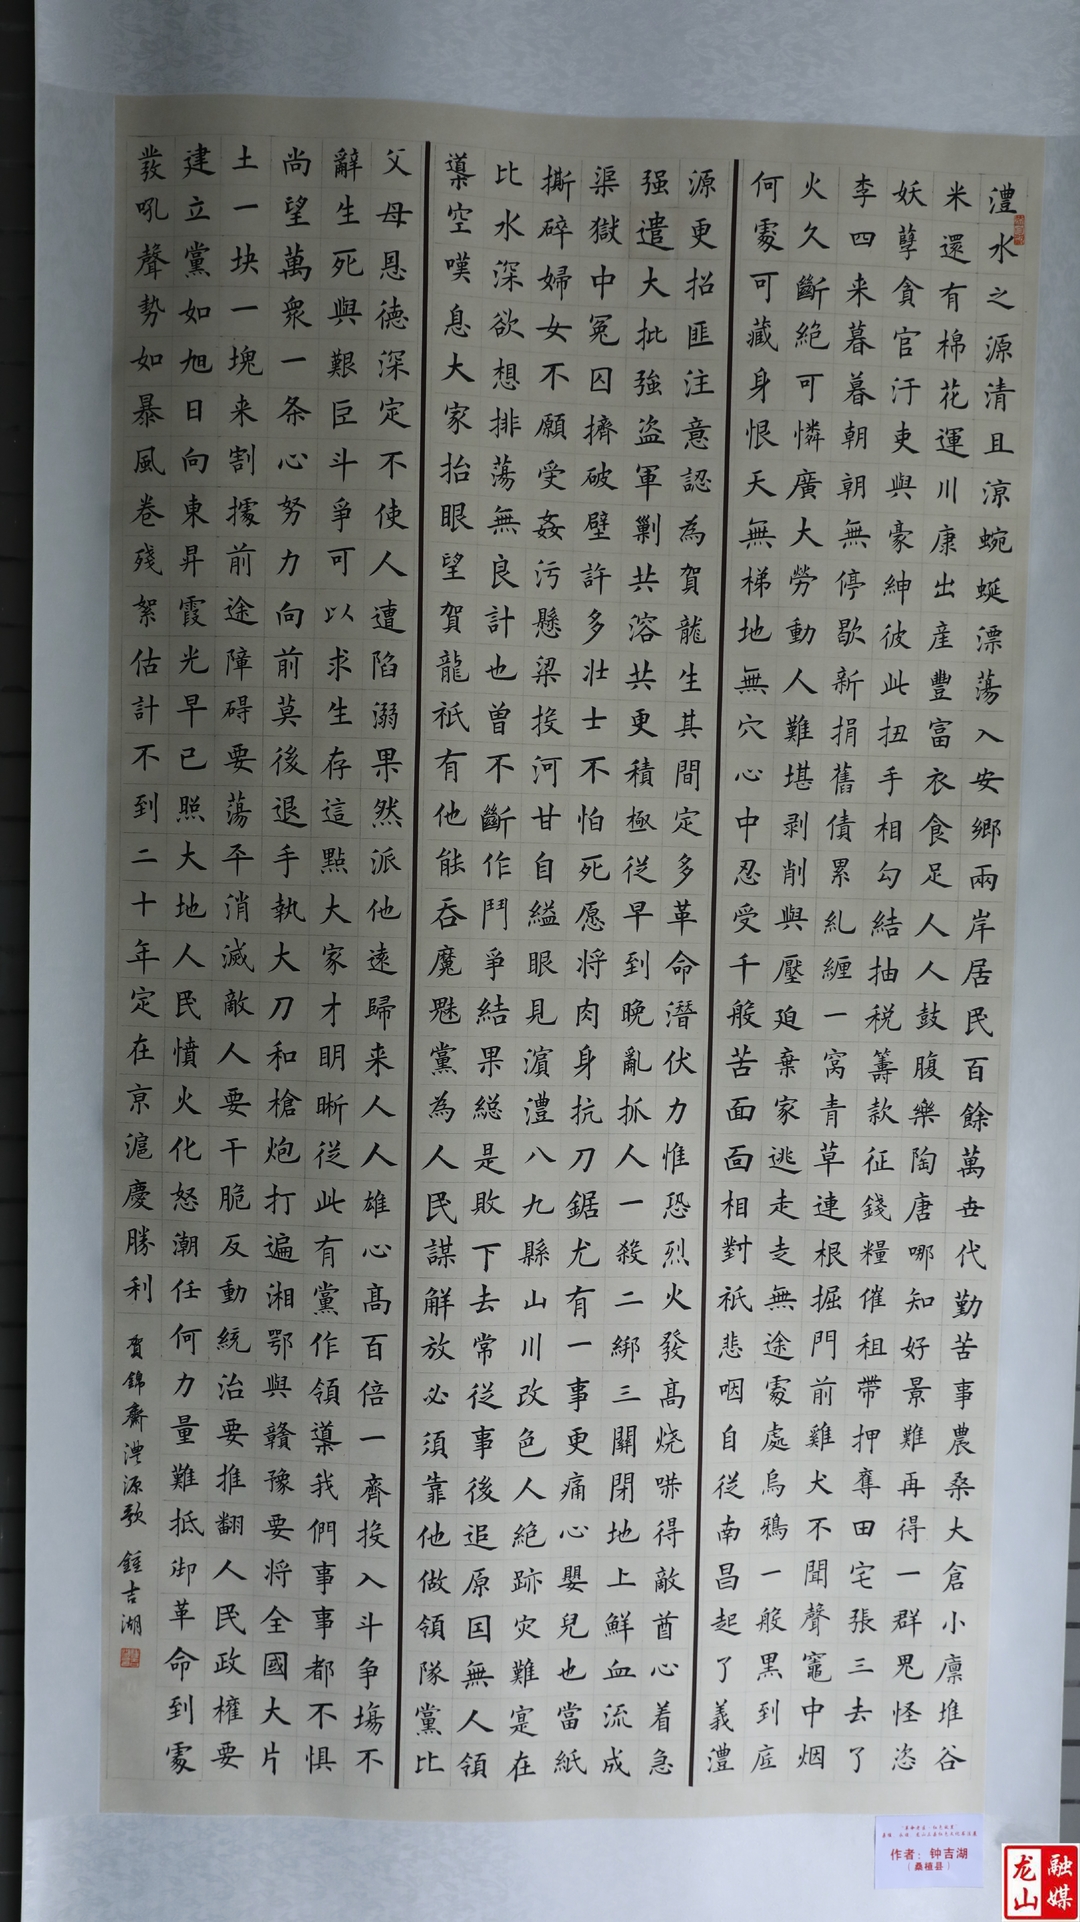 澧水之源清且涼蜿蜒漂蕩入安鄉兩岸居民百餘萬世代勤苦事農桑大倉小廪堆谷
米還有棉花運川康出産豐富衣食足人人鼓腹樂陶唐哪知好景難再得一群鬼怪恣
妖孽貪官汙吏與豪紳彼此扭手相勾結抽税籌款征錢糧催租帶押奪田宅張三去了
李四来暮暮朝朝無停歇新捐舊債累糺纏一窝青草連根掘門前雞犬不聞聲竈中烟
火久斷絶可憐廣大勞動人難堪剥削與壓廹棄家逃走走無途處處烏鴉一般黑到底
何處可藏身恨天無梯地無穴心中忍受千般苦面面相對祇悲咽自從南昌起了義澧
源更招匪注意認為賀龍生其間定多革命潛伏力惟恐烈火發高烧哄得敵酋心着急
强遣大批強盗軍剿共溶共更積極從早到晚亂抓人一殺二綁三關閉地上鮮血流成
渠獄中冤囚擠破壁許多壮士不怕死愿将肉身抗刀鋸尤有一事更痛心嬰兒也當紙
撕碎婦女不願受姦污懸梁投河甘自縊眼見濵澧八九縣山川改色人絶跡灾難寔在
比水深欲想排蕩無良計也曾不斷作鬥爭結果総是敗下去常從事後追原因無人領
導空嘆息大家抬眼望賀龍祇有他能吞魔魅黨為人民謀解放必須靠他做領隊黨比
父母恩德深定不使人遭陷溺果然派他遠歸来人人雄心高百倍一齊投入斗争場不
辭生死與艱巨斗爭可以求生存這點大家才明晰從此有黨作領導我們事事都不惧
尚望萬衆一条心努力向前莫後退手執大刀和槍炮打遍湘鄂與贛豫要将全國大片
土一块一塊来割據前途障碍要蕩平消滅敵人要干脆反動統治要推翻人民政權要
建立黨如旭日向東昇霞光早已照大地人民憤火化怒潮任何力量難抵御革命到處
發吼聲勢如暴風卷殘絮估計不到二十年定在京滬慶勝利
賀錦齋澧源歌 鍾吉湖
作者：钟吉湖
（桑植县）
龙山融媒